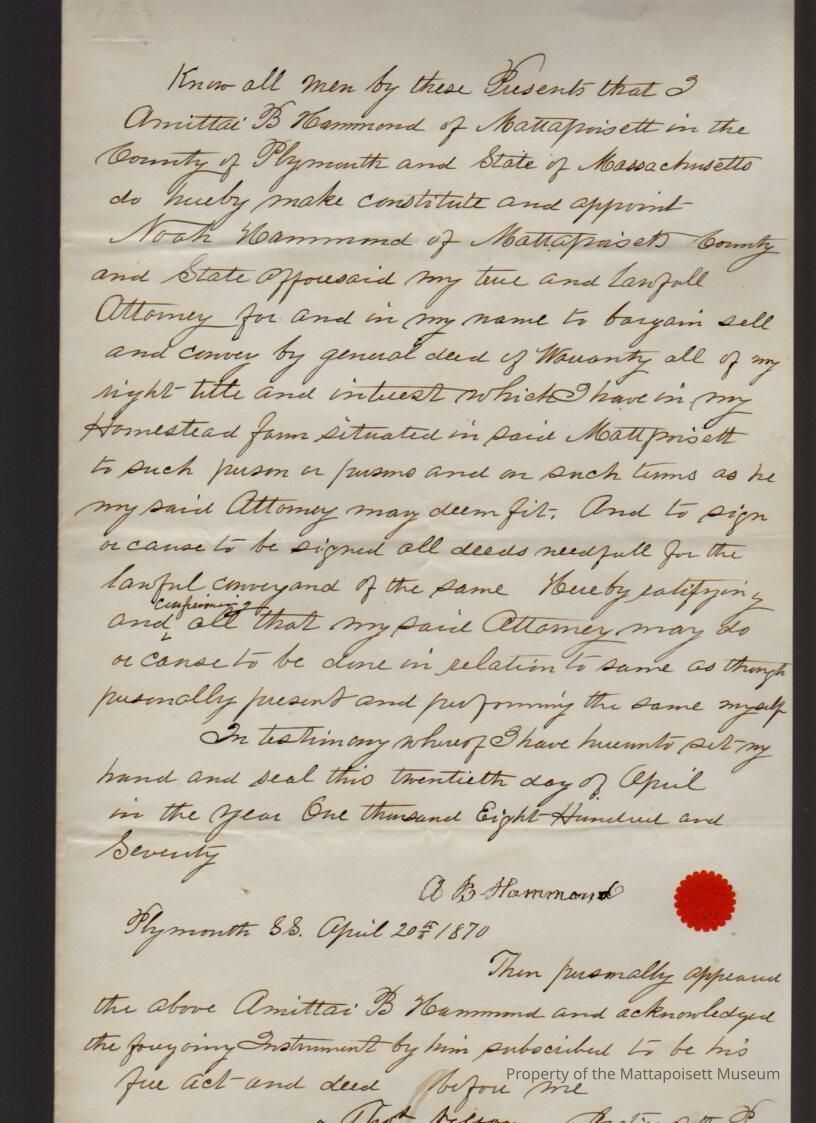 Know all men by these Presents that I
Amittai B Hammond of Mattapoisett in the
County of Plymouth and State of Massachusetts
do hereby make constitute and appoint
Noah Hammond of Mattapoisett County
and State afforesaid my true and lawfull
Attorney for and in my name to bargain sell
and convey by general deed of Warranty all of my
right title and interest which I have in my
Homestead farm situated in said Mattpoisett
to such person or persons and on such terms as he
my said Attorney may deem fit. And to sign
or cause to be signed all deeds needfull for the
lawful conveyand of the same Hereby ratifying
confirming
and all that my said Attorney may do
or cause to be done in relation to same as though
personally present and performing the same myself
In testimony whereof I have hereunto set my
hand and seal this twentieth day of April
in the year One thousand Eight Hundred and
Seventy
A B Hammond
Plymouth SS. April 20th 1870
Then personally appeared
the above Amittai B Hammond and acknowledged
the foregoing Instrument by him subscribed to be his
free act and deed before me
Property of the Mattapoisett Museum
Thos Nelson